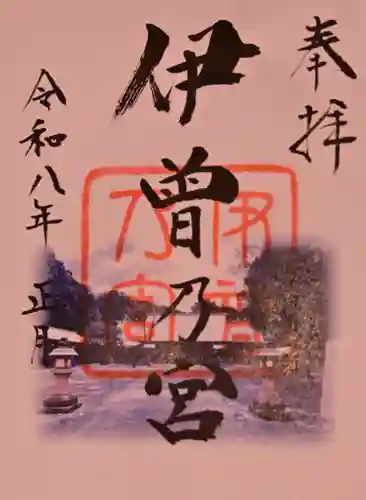 奉拝
伊曽乃宮
伊曽乃宮
令和八年正月